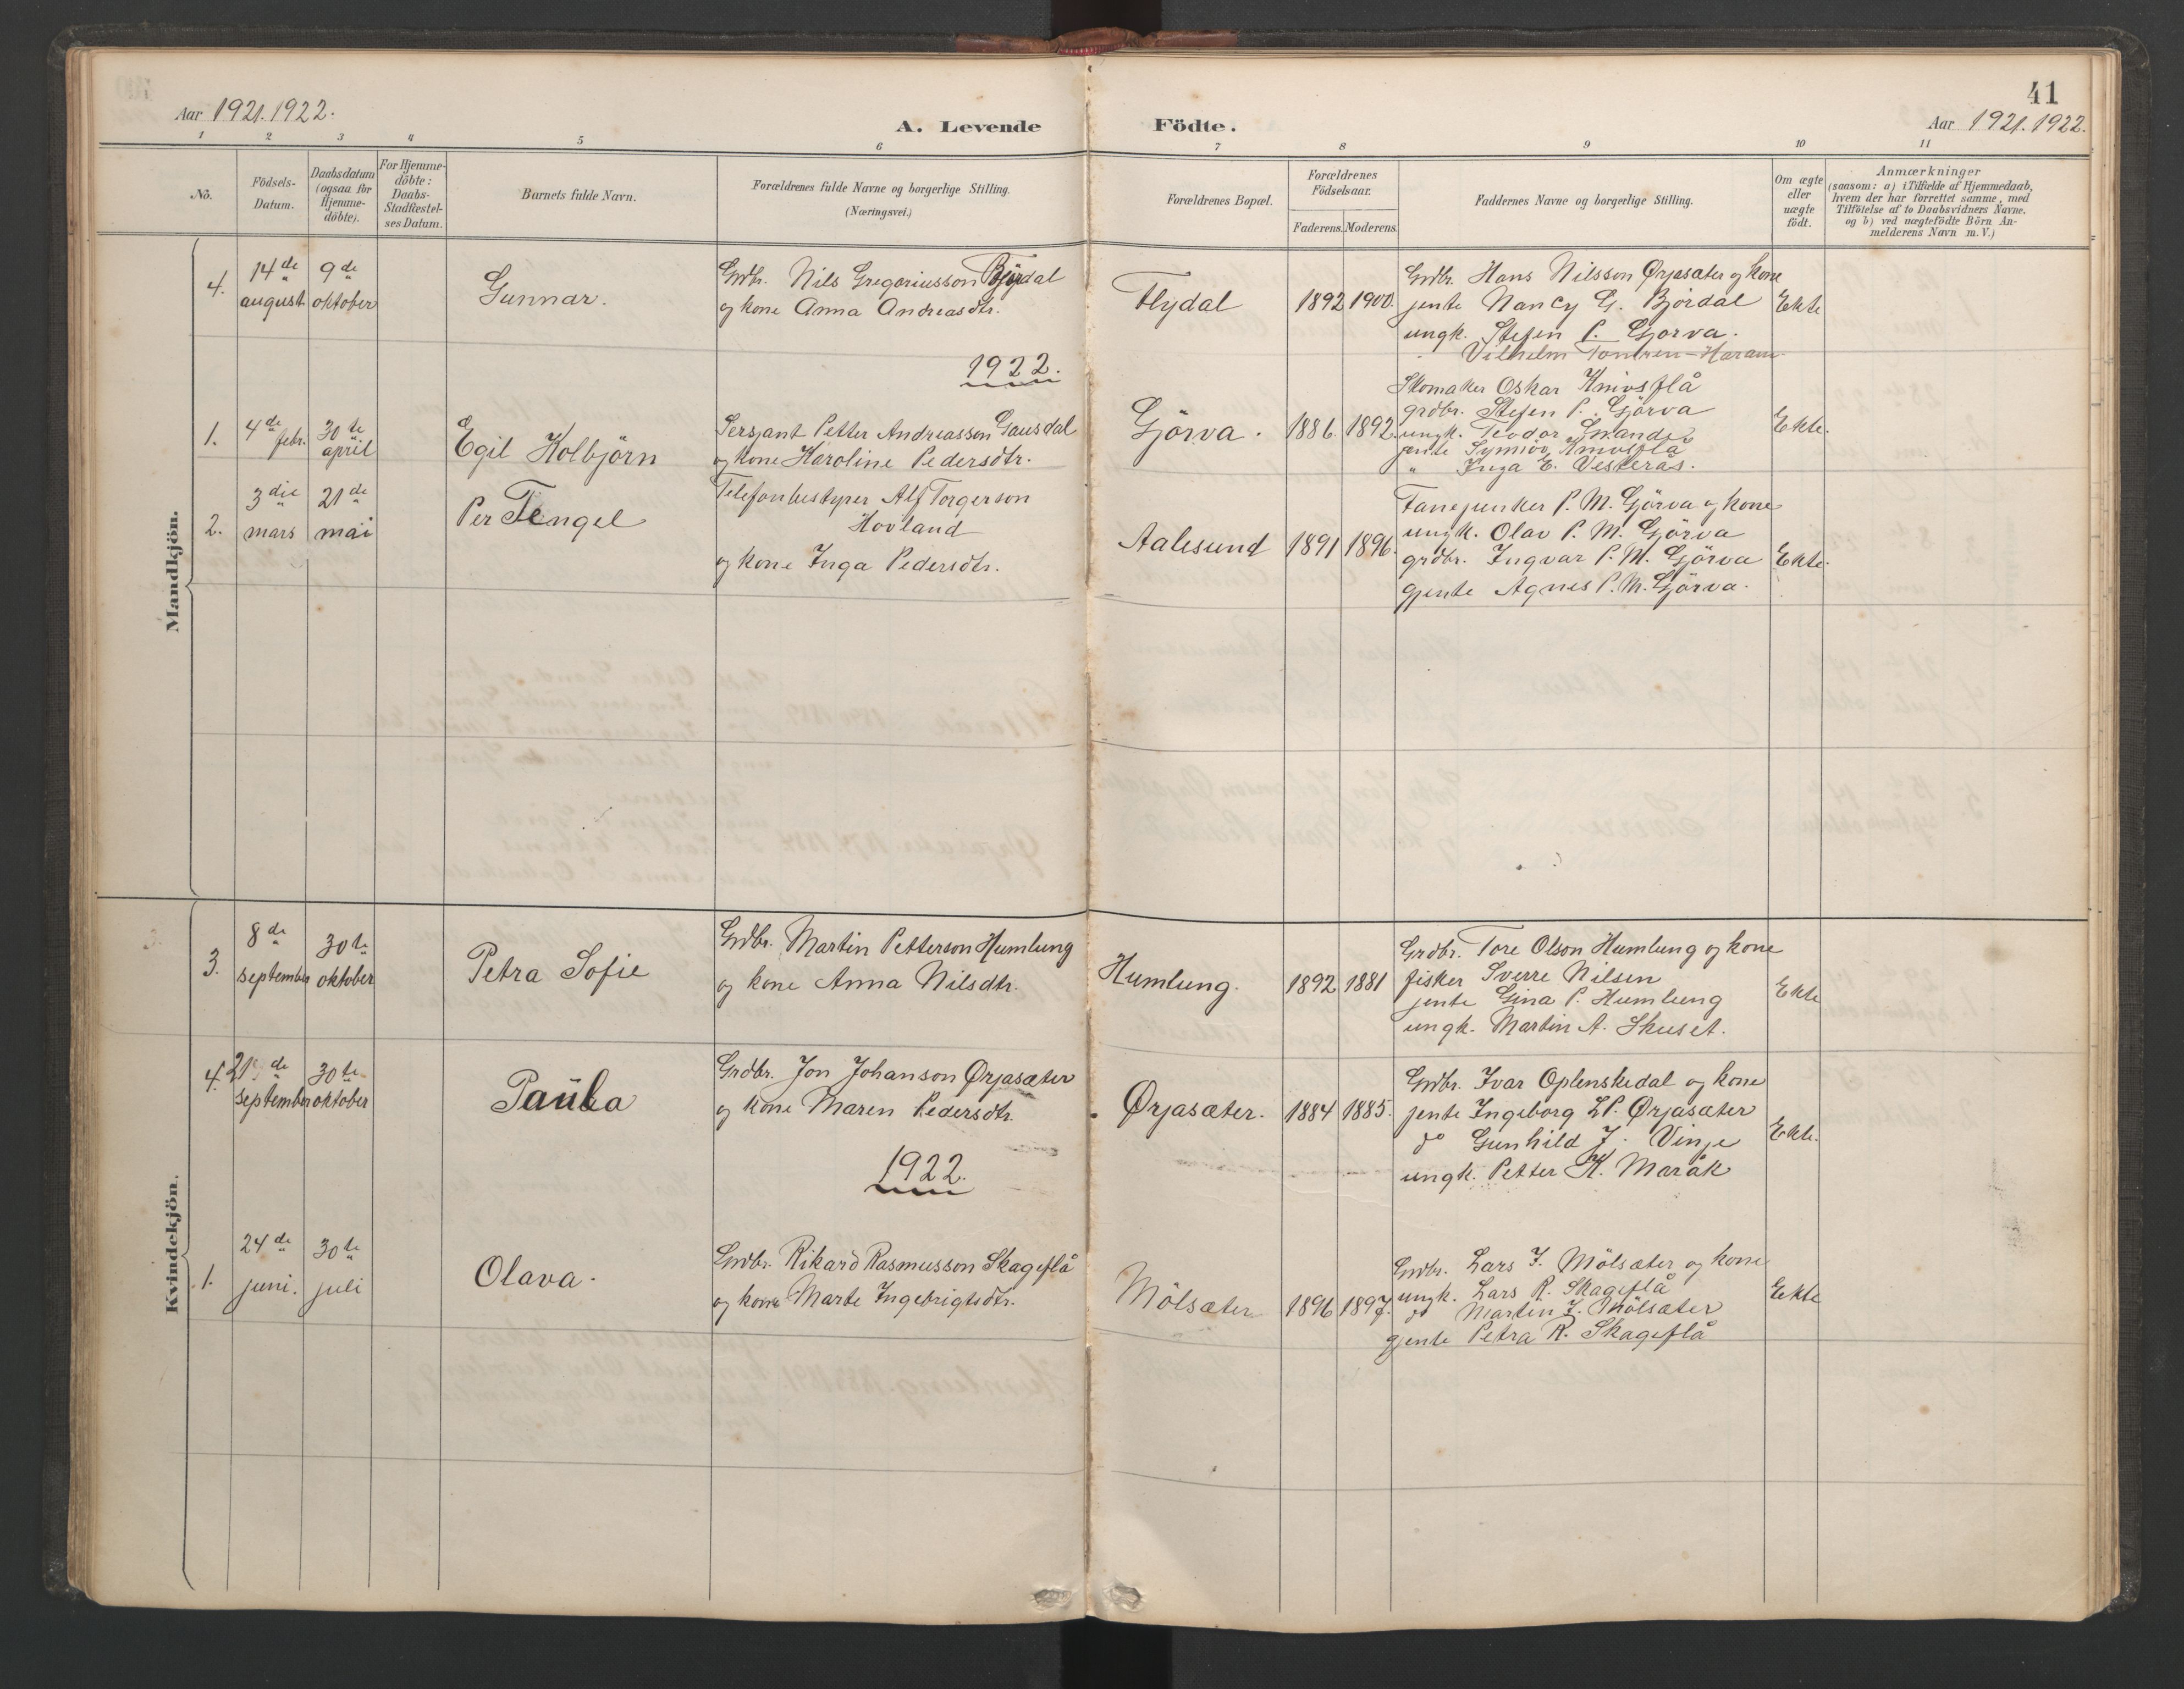 41
Aar 1921. 1922.
A. Levende Födte.
Aar 1921. 1922.
1 2 3 4 5 6 7 8 9 10 11
No.
Födsels-Datum.
Daabsdatum (ogsaa for Hjemmedöbte).
For Hjemmedöbte: Daabs-Stadfæstelses Datum.
Barnets fulde Navn.
Forældrenes fulde Navne og borgerlige Stilling. (Næringsvei.)
Forældrenes Bopæl.
Forældrenes Födselsaar.
Faderens. Moderens.
Faddernes Navne og borgerlige Stilling.
Om ægte eller uægte födt.
Anmærkninger
(saasom: a) i Tilfælde af Hjemmedaab, hvem der har forrettet samme, med Tilföielse af to Daabsvidners Navne, og b) ved uægtefödte Börn Anmelderens Navn m.V.)
Mandkjön.
4. 14de august 9de oktober
Gunnar.
Grdbr. Nils Gregoriusson Björdal
og kone Anna Andreasdtr.
Flydal 1892 1900.
Grdbr. Hans Nilsson Ørjasæter og kone
jente Nancy G. Björdal
ungk. Stefen P. Gjörva.
Vilhelm Tomren-Haram.
Ekte
1922.
1. 4de febr. 30te april
Egil Kolbjörn
Sersjant Petter Andreasson Gausdal
og kone Karoline Pedersdtr.
Gjörva. 1886. 1892.
Skomaker Oskar Knivsflå
grdbr. Stefen P. Gjörva
ungk. Teodor
jente Synnöv Knivsflå
" Inga E. Vesterås.
Ekte.
2. 3die mars 21de mai
Per Tengel
Telefonbestyrer Alf Torgerson
Hovland
og kone Inga Pedersdtr.
Aalesund 1891 1896.
Fanejunker P. M. Gjörva og kone
ungk. Olav P. M. Gjörva
grdbr. Ingvar P. M. Gjörva
gjente Agnes P. M. Gjörva.
Ekte.
Kvindekjön.
3. 8de september 30te oktober
Petra Sofie
Grdbr. Martin Petterson Humlung
og kone Anna Nilsdtr.
Humlung. 1892 1881
Grdbr. Tore Olson Humlung og kone
fisker Sverre Nilsen
jente Gina P. Humlung
ungk. Martin A. Skuset.
Ekte
4. 21de september 30te oktober
Paula
Grdbr. Jon Johanson Ørjasæter
og kone Maren Pedersdtr.
Ørjasæter. 1884 1885.
Grdbr. Ivar Oplenskedal og kone
jente Ingeborg L P. Ørjasæter
do Gunhild J. Vinje
ungk. Petter K. Maråk
Ekte.
1922.
1. 24de juni. 30te juli
Olava.
Grdbr. Rikard Rasmusson Skageflå
og kone Marte Ingebrigtsdtr.
Mölsæter 1896 1897.
Grdbr. Lars I. Mölsæter og kone
ungk. Lars R. Skageflå
do Martin I. Mölsæter
gjente Petra R. Skageflå
Ekte